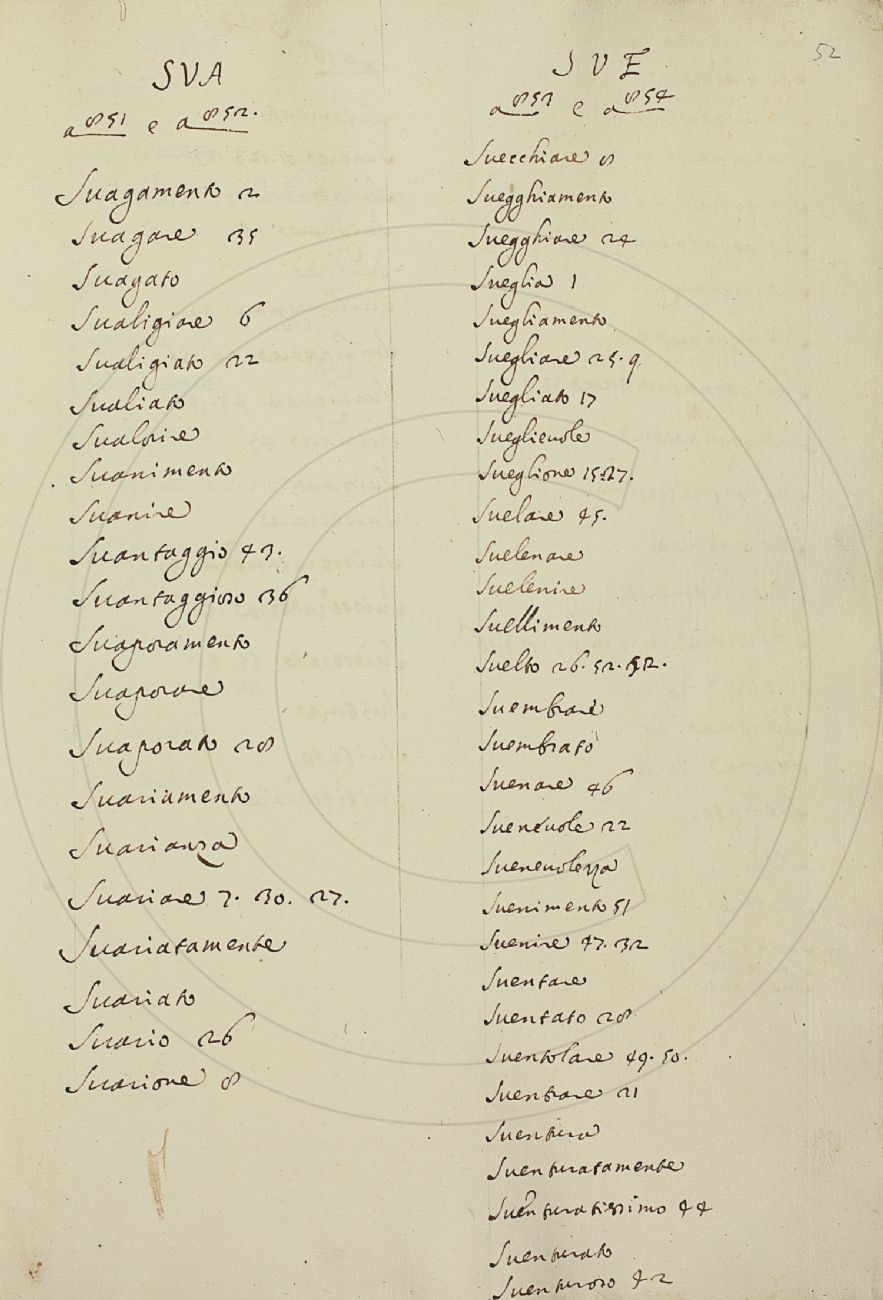 52
SVA
a 851 e a 852.
Suagamento 2
Suagare 35
Suagato
Sualigiare 6
Sualigiato 22
Sualiato
Sualorire
Suanimento
Suanire
Suantaggio 43.
Suantaggioso 36
Suaporamento
Suaporare
Suaporato 28
Suariamento
Suarianza
Suariare 7. 30. 27.
Suariatamente
Suariato
Suario 26
Suarione 8
SVE
a 853 e a 854
Suecchiare 8
Suegghiamento
Suegghiare 24
Sueglia 1
Suegliamento
Suegliare 25. 9
Suegliato 17
Sueglieuole
Sueglione 15.27.
Suelare 45.
Suelenare
Suelenire
Suellimento
Suelto 26. 52. 42.
Suembrare
Suembrato
Suenare 46
Sueneuole 22
Sueneuolezza
Suenimento 51
Suenire 47. 32
Suentare
Suentato 28
Suentolare 49. 50.
Suentrare 21
Suentura
Suenturatamente
Suenturatissimo 44
Suenturato
Suenturoso 42